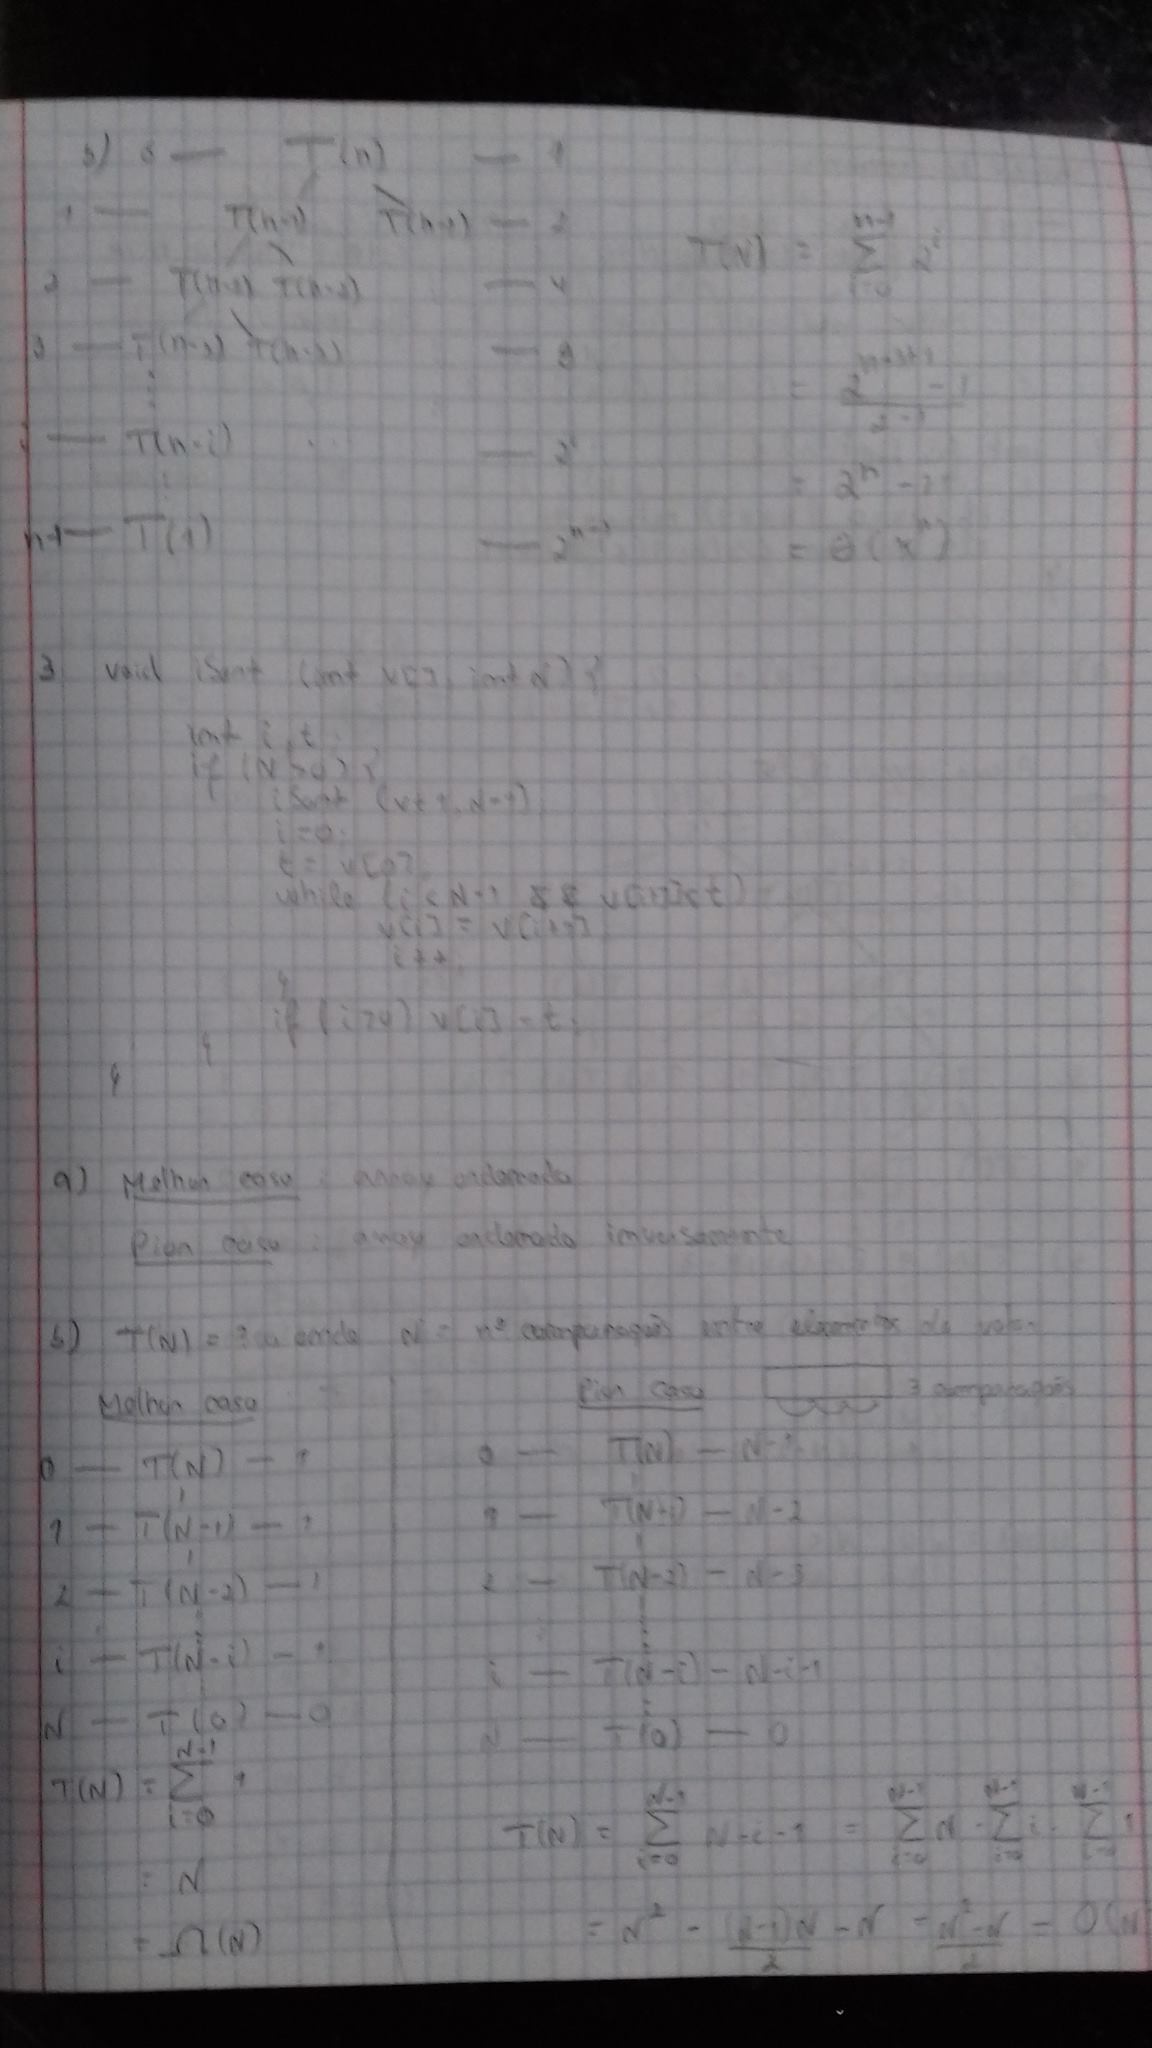 b) 0 — T(n) — 1
1 — T(n-1) T(n-1) — 2
2 — T(n-2) T(n-2) — 4
3 — T(n-3) T(n-3) — 8
i — T(n-i) ... — 2^i
n-1 — T(1) — 2^{n-1}
T(N) = \sum_{i=0}^{n-1} 2^i
= \frac{2^{n-1+1} - 1}{2-1}
= 2^n - 1
= Θ( ^n)
3 void iSort (int v[], int N) {
int i, t;
if (N > 0) {
iSort (v+1, N-1)
i=0;
t = v[0];
while (i < N-1 && v[i+1] < t)
v[i] = v[i+1]
i++;
}
if (i>0) v[i] = t;
}
}
a) Melhor caso : array ordenado
Pior caso : array ordenado inversamente
b) T(N) = ? onde N = nº comparações entre elementos do
Melhor caso
0 — T(N) — 1
1 — T(N-1) — 1
2 — T(N-2) — 1
i — T(N-i) — 1
N — T(0) — 0
T(N) = \sum_{i=0}^{N-1} 1
= N
= Ω(N)
Pior caso 3 comparações
0 — T(N) — N-1
1 — T(N-1) — N-2
2 — T(N-2) — N-3
i — T(N-i) — N-i-1
N — T(0) — 0
T(N) = \sum_{i=0}^{N-1} N-i-1 = \sum_{i=0}^{N-1} N - \sum_{i=0}^{N-1} i - \sum_{i=0}^{N-1} 1
= N^2 - \frac{(N-1)N}{2} - N = \frac{N^2-N}{2} = O(N